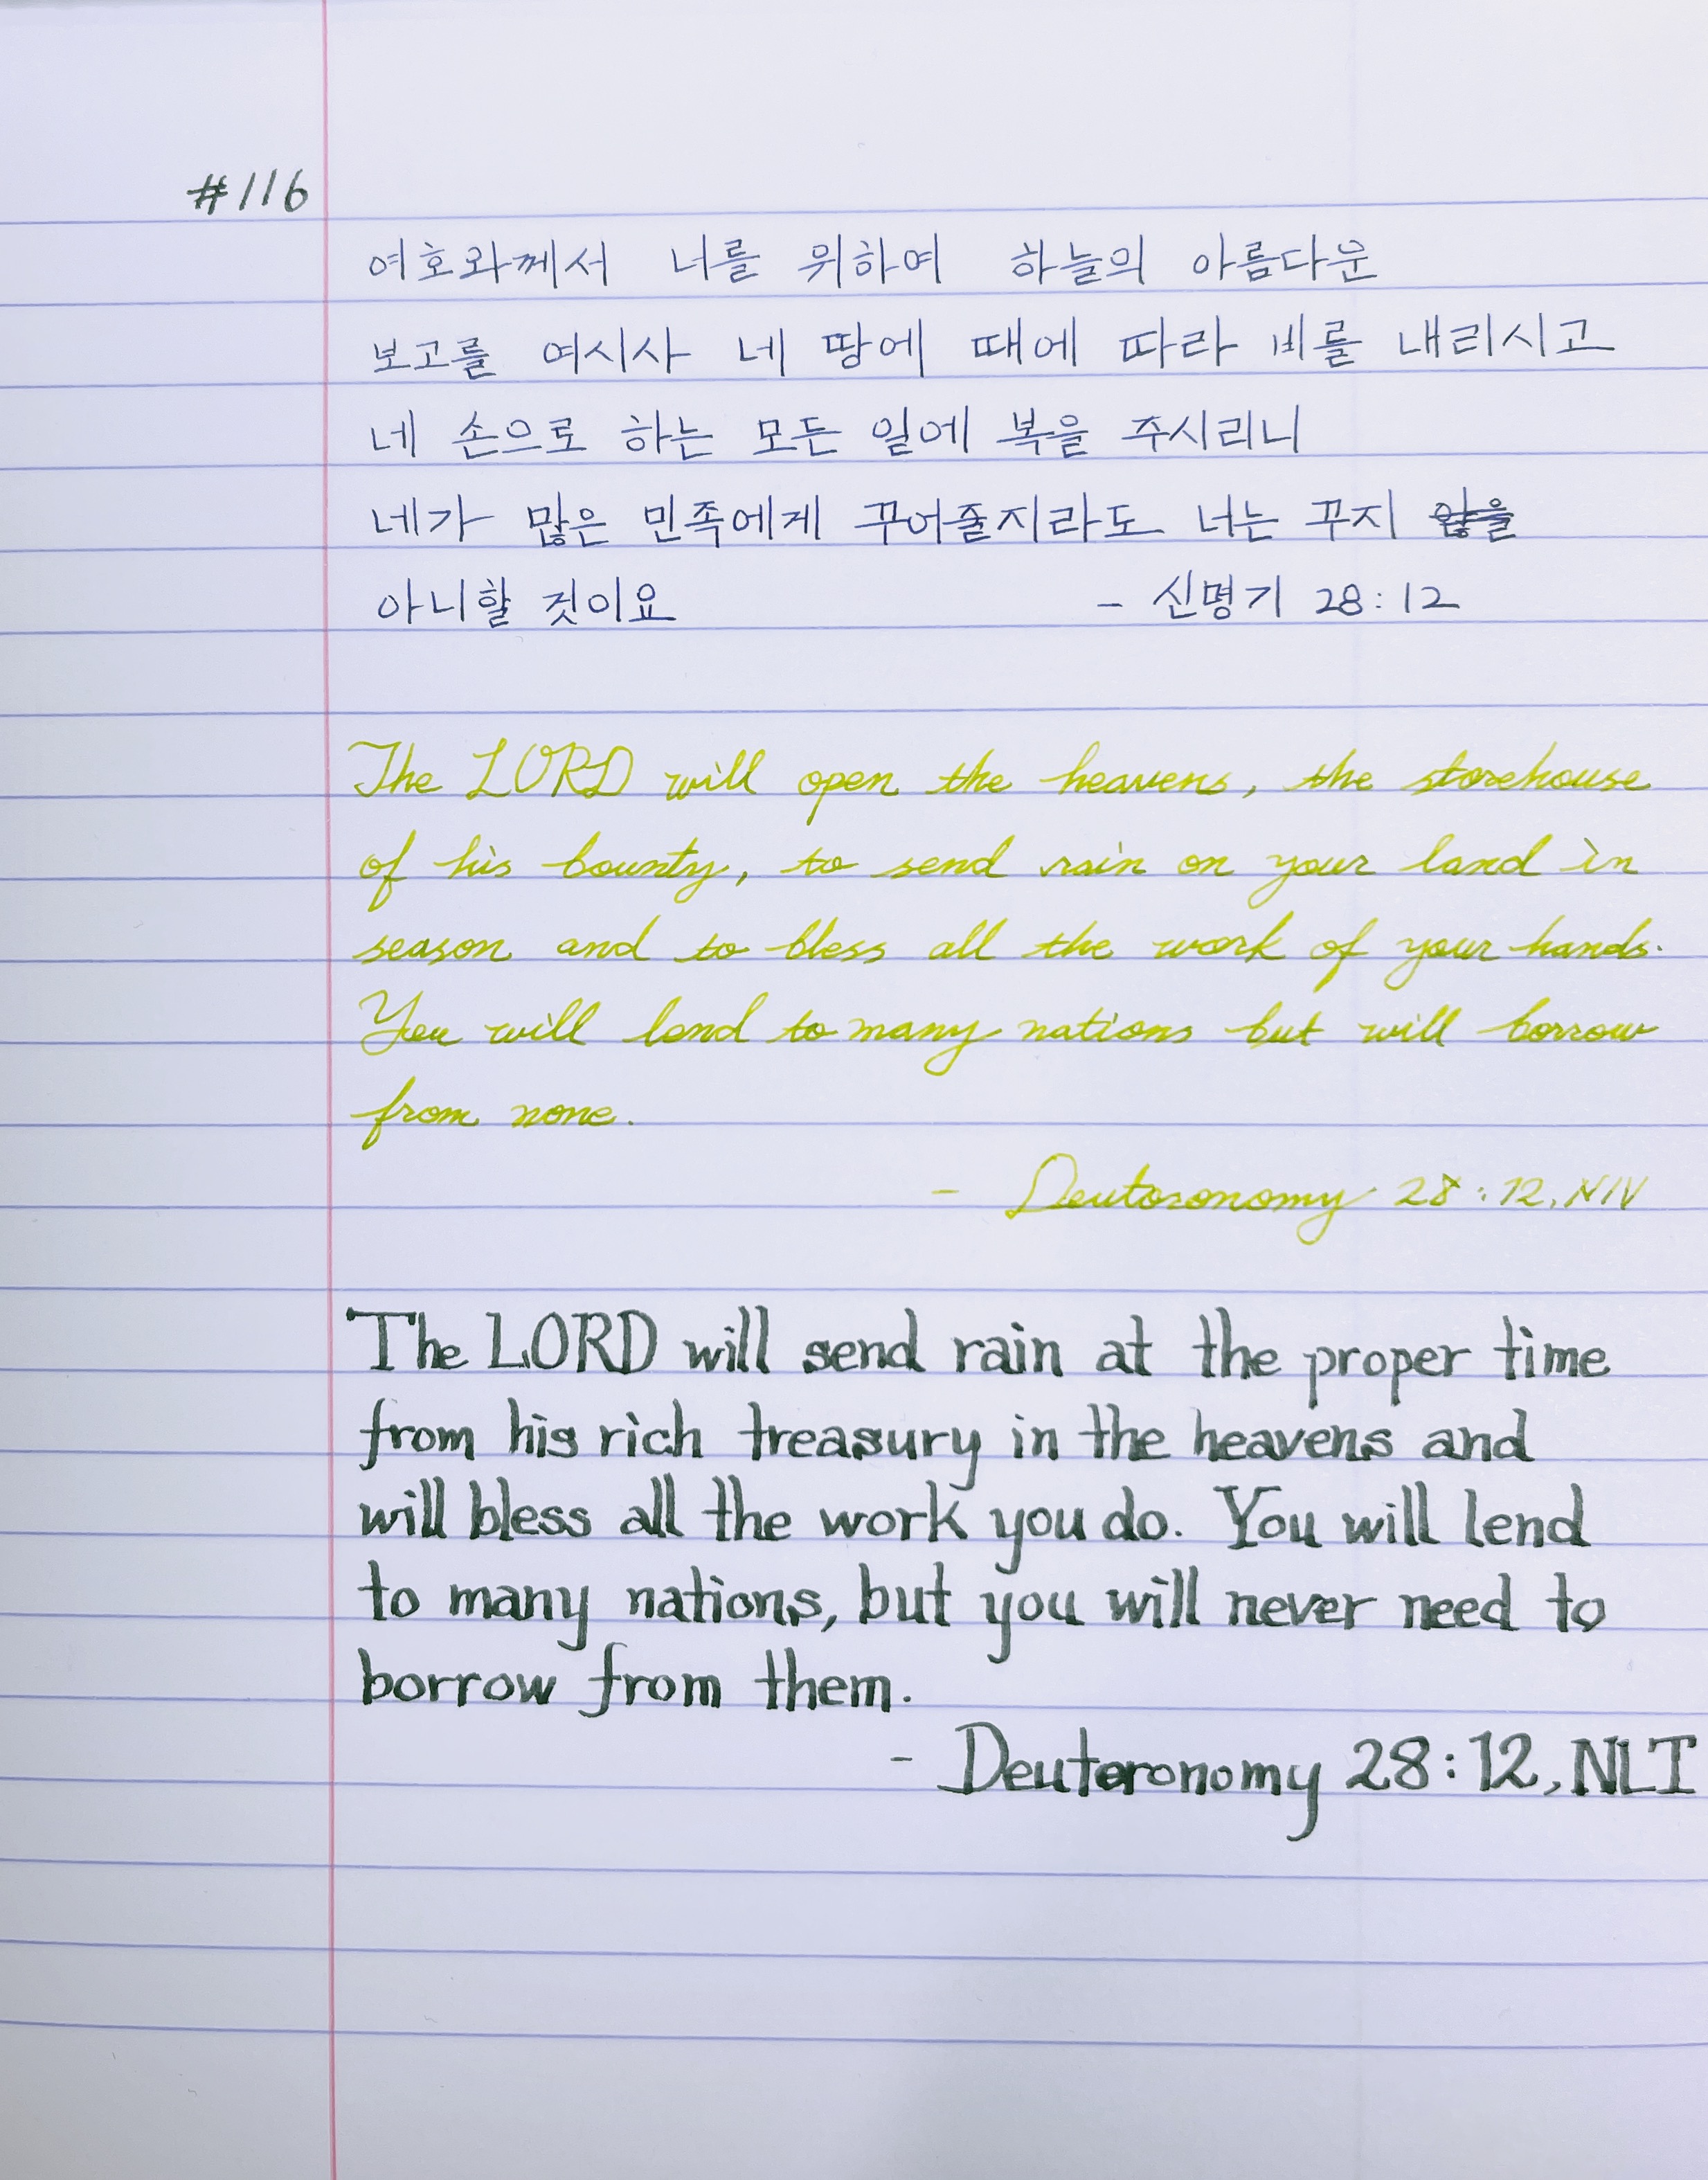 #116
여호와께서 너를 위하여 하늘의 아름다운
보고를 여시사 네 땅에 때에 따라 비를 내리시고
네 손으로 하는 모든 일에 복을 주시리니
네가 많은 민족에게 꾸어줄지라도 너는 꾸지 않을
아니할 것이요 - 신명기 28:12
The LORD will open the heavens, the storehouse
of his bounty, to send rain on your land in
season and to bless all the work of your hands.
You will lend to many nations but will borrow
from none.
- Deuteronomy 28:12, NIV
The LORD will send rain at the proper time
from his rich treasury in the heavens and
will bless all the work you do. You will lend
to many nations, but you will never need to
borrow from them.
- Deuteronomy 28:12, NLT